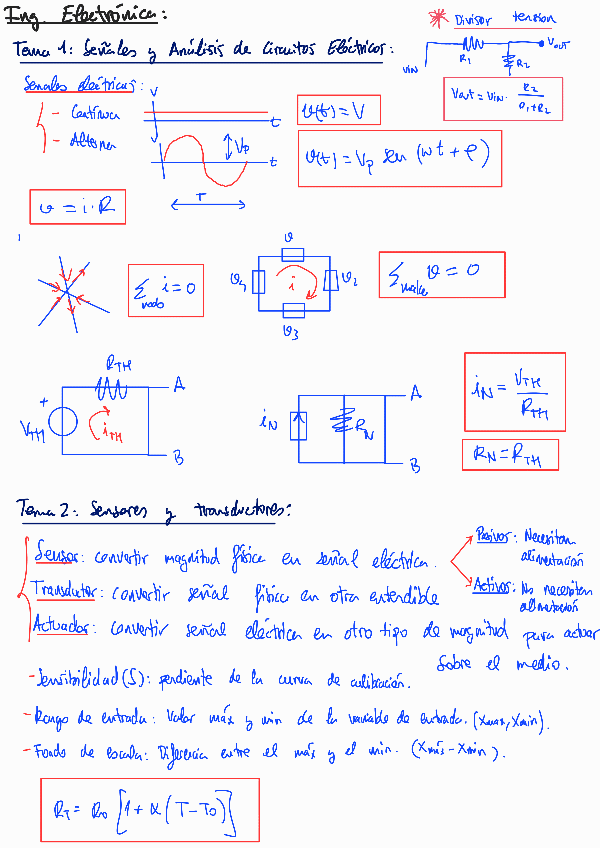 Ing. Electrónica:
* Divisor tension
Tema 1: Señales y Análisis de Circuitos Eléctricos:
Vin R1 R2 Vout
Vout = Vin · R2 / (R1+R2)
Señales eléctricas:
- Continua
- Alterna
V
t
v(t) = V
Vp
t
T
v(t) = Vp sen (wt + φ)
v = i · R
Σ nodo i = 0
v
v4 i v2
v3
Σ malla v = 0
RTH
A
+
VTH iTH
B
A
iN RN
B
iN = VTH / RTH
RN = RTH
Tema 2: Sensores y transductores:
Sensor: convertir magnitud física en señal eléctrica.
Pasivos: Necesitan
alimentación
Activos: No necesitan
alimetación
Transdutor: convertir señal física en otra entendible
Actuador: convertir señal eléctrica en otro tipo de magnitud para actuar
sobre el medio.
- Sensibilidad (S): pendiente de la curva de calibración.
- Rango de entrada: Valor máx y min de la variable de entrada. (xmax, xmin).
- Fondo de escala: Diferencia entre el máx y el min. (xmáx - xmin).
RT = R0 [1 + α (T - T0)]